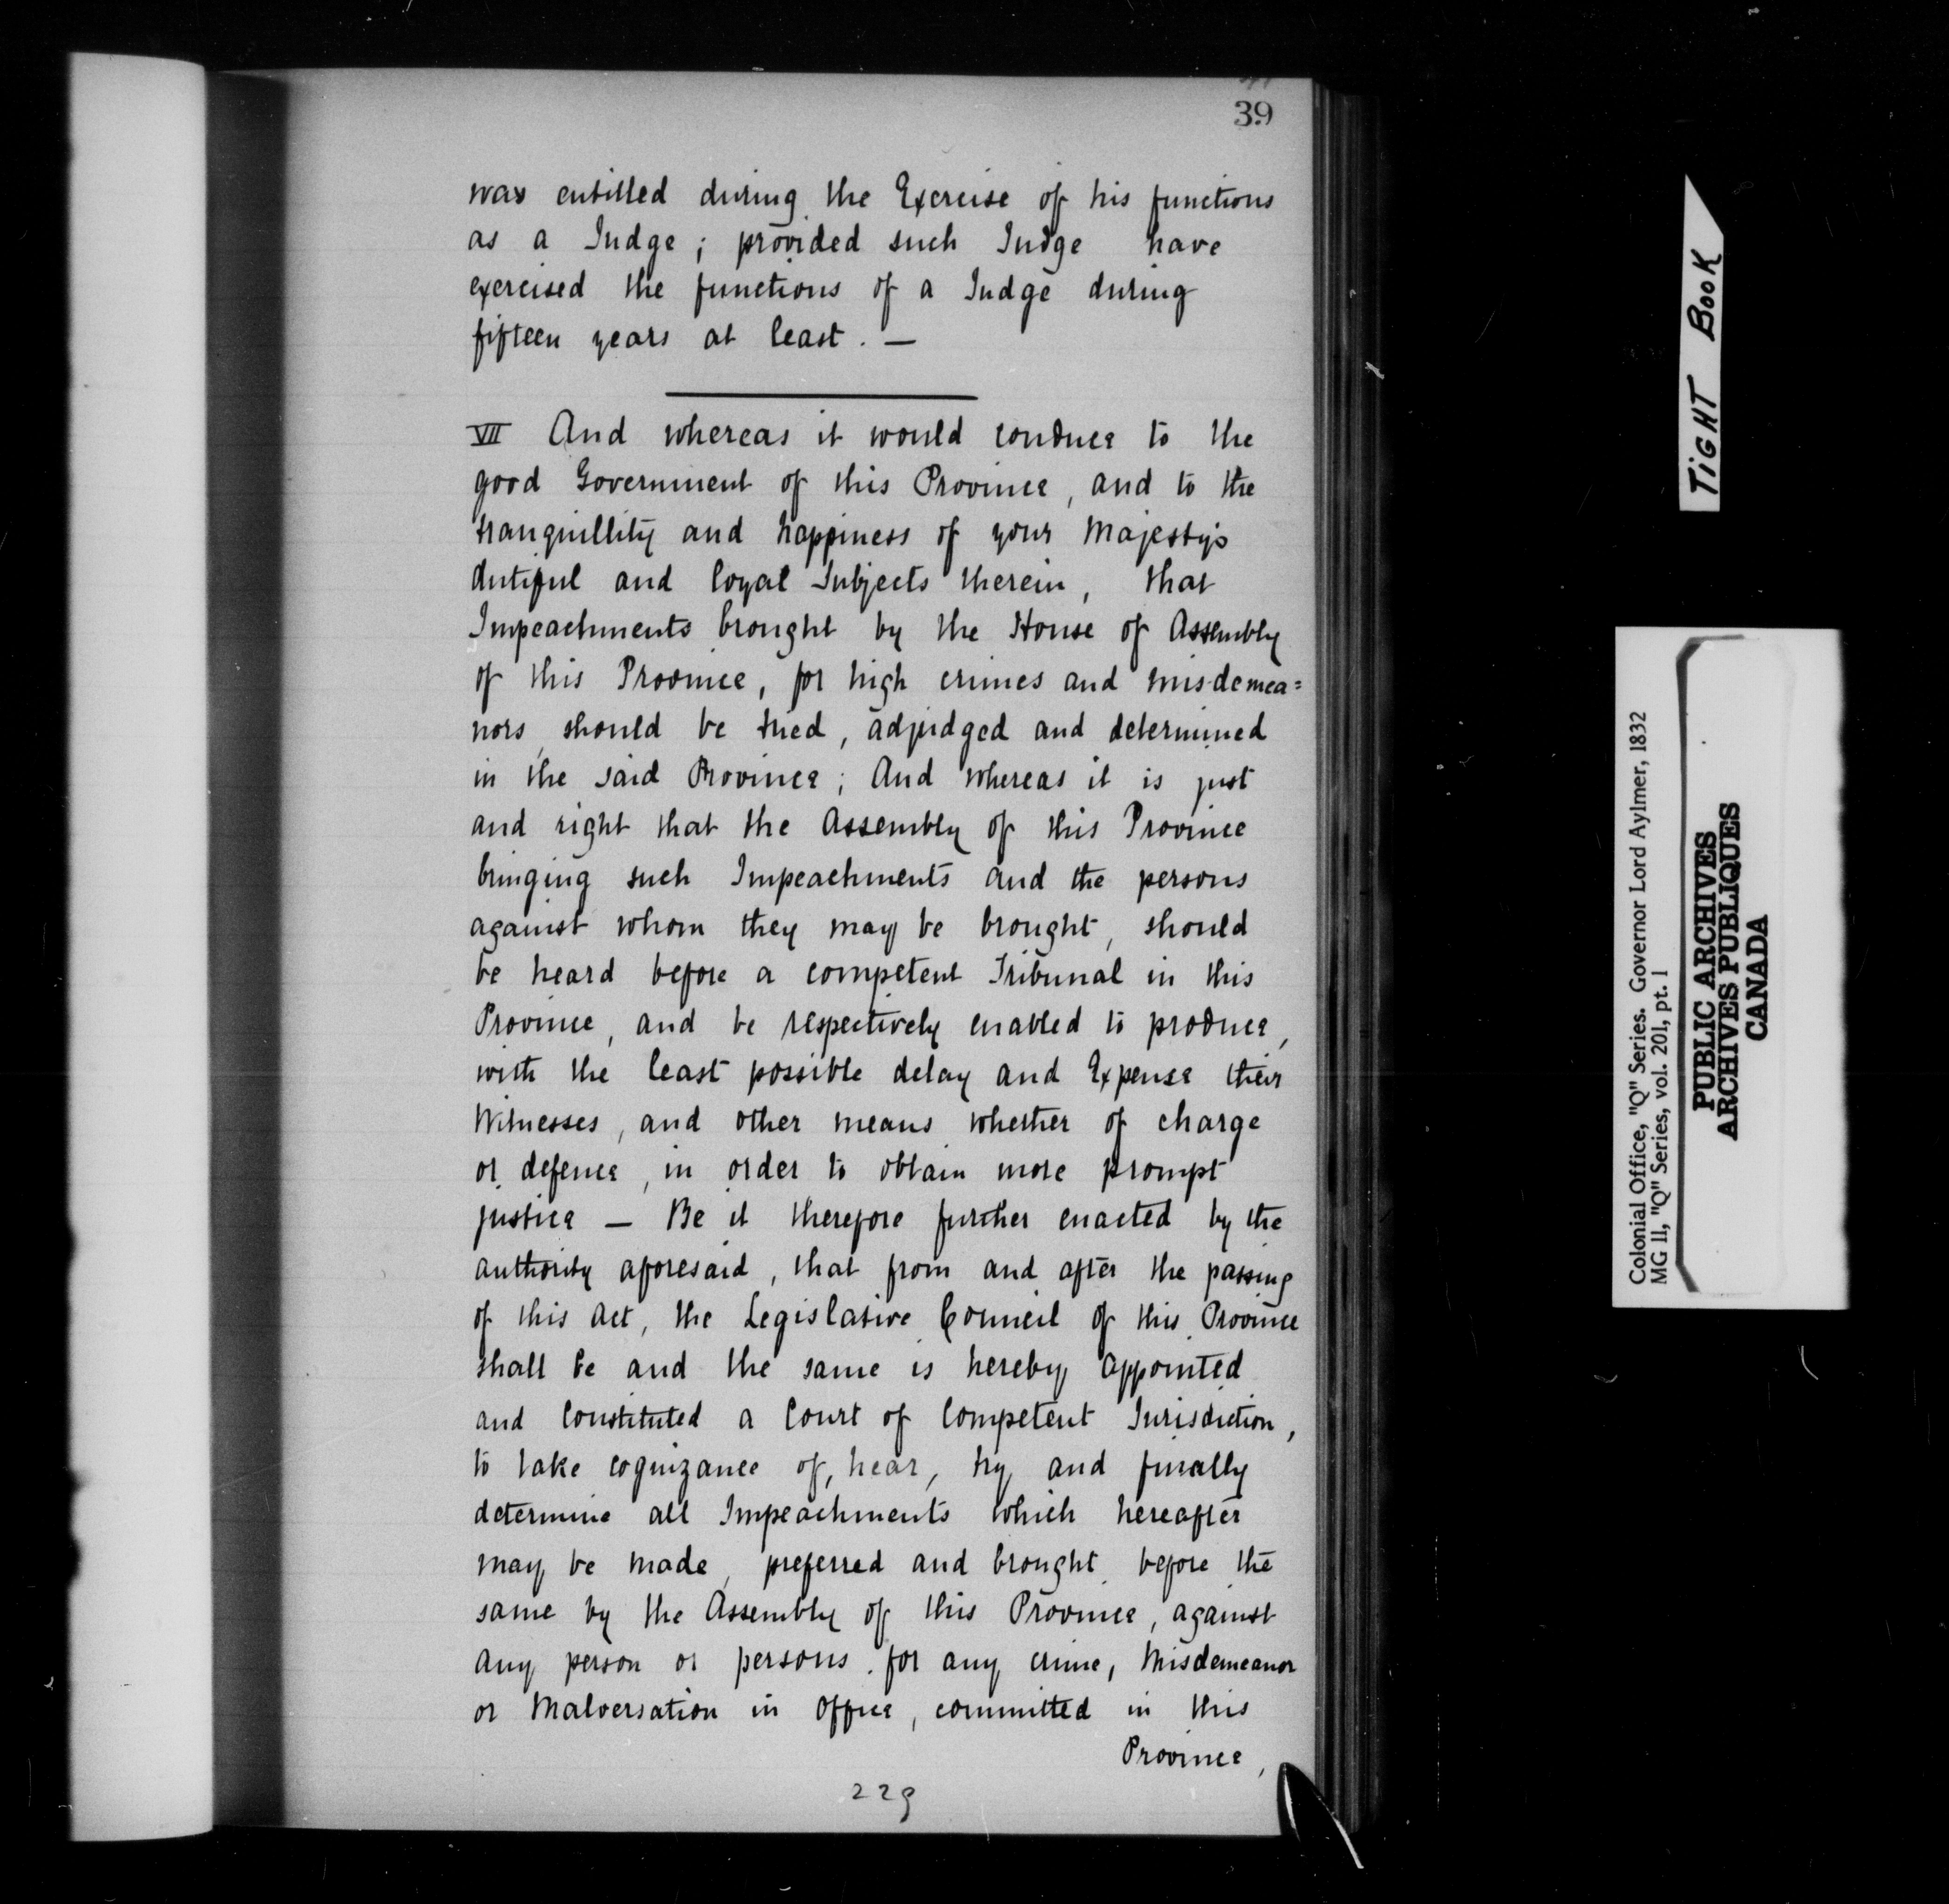 39
was entitled during the Exercise of his functions
as a Judge ; provided such Judge have
exercised the functions of a Judge during
fifteen years at least . —
VII And whereas it would conduce to the
good Government of this Province , and to the
tranquillity and happiness of your Majesty's
dutiful and loyal Subjects therein , that
Impeachments brought by the House of Assembly
of this Province , for high crimes and misdemea=
nors , should be tried , adjudged and determined
in the said Province ; And whereas it is just
and right that the Assembly of this Province
bringing such Impeachments and the persons
against whom they may be brought , should
be heard before a competent Tribunal in this
Province , and be respectively enabled to produce ,
with the least possible delay and Expense their
Witnesses , and other means whether of charge
or defence , in order to obtain more prompt
justice — Be it therefore further enacted by the
authority aforesaid , that from and after the passing
of this Act , the Legislative Council of this Province
shall be and the same is hereby appointed
and Constituted a Court of Competent Jurisdiction ,
to take cognizance of , hear , try and finally
determine all Impeachments which hereafter
may be made , preferred and brought before the
same by the Assembly of this Province , against
any person or persons . for any crime , Misdemeanor
or Malversation in Office , committed in this
Province ,
229
TIGHT BOOK
Colonial Office, "Q" Series. Governor Lord Aylmer, 1832
MG 11, "Q" Series, vol. 201, pt. 1
PUBLIC ARCHIVES
ARCHIVES PUBLIQUES
CANADA